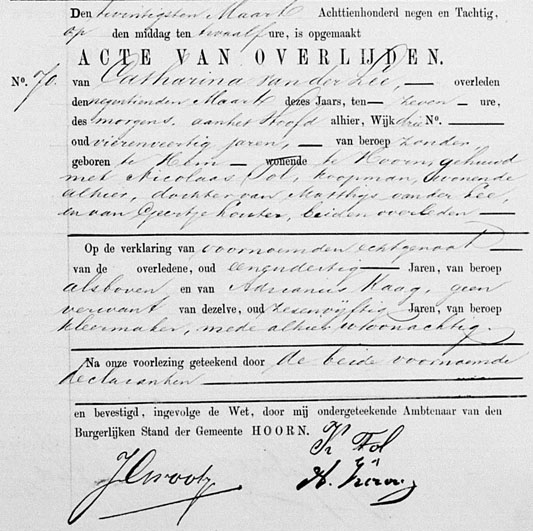 Den twintigsten Maart Achttienhonderd negen en Tachtig,
op den middag ten twaalf ure, is opgemaakt
ACTE VAN OVERLIJDEN.
No. 70. van Catharina van der Lee, — overleden
den negentienden Maart dezes Jaars, ten zeven — ure,
des morgens, aan het Hoofd alhier, Wijk drie No. —
oud vierenveertig jaren, — van beroep zonder
geboren te — wonende te Hoorn, gehuwd
met Nicolaas Tol, koopman, wonende
alhier, dochter van Matthijs van der Lee,
en van Geertje Kouter, beiden overleden —
Op de verklaring van voornoemden echtgenoot —
van de overledene, oud eenendertig — Jaren, van beroep
alsboven en van Adrianus Kaag, geen
verwant van dezelve, oud zesenvijftig Jaren, van beroep
kleermaker, mede alhier woonachtig.
Na onze voorlezing geteekend door de beide voornoemde
declaranten —
en bevestigd, ingevolge de Wet, door mij ondergeteekende Ambtenaar van den
Burgerlijken Stand der Gemeente HOORN.
Tol